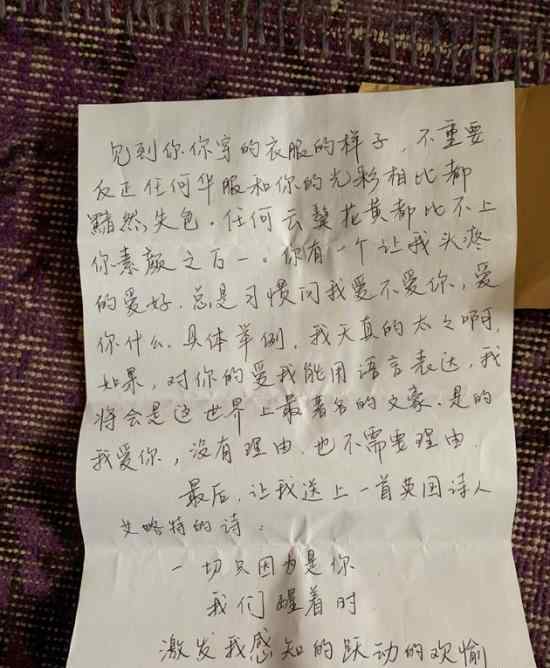 见到你你穿的衣服的样子，不重要
反正任何华服和你的光彩相比都
黯然失色．任何云鬓花黄都比不上
你素颜之万一。你有一个让我头疼
的爱好．总是习惯问我爱不爱你，爱
你什么．具体举例．我天真的太太啊，
如果，对你的爱我能用语言表达，我
将会是这世界上最著名的文豪．是的
我爱你，没有理由．也不需要理由．
最后．让我送上一首英国诗人
艾略特的诗：
一切只因为是你
我们醒着时
激发我感知的跃动的欢愉